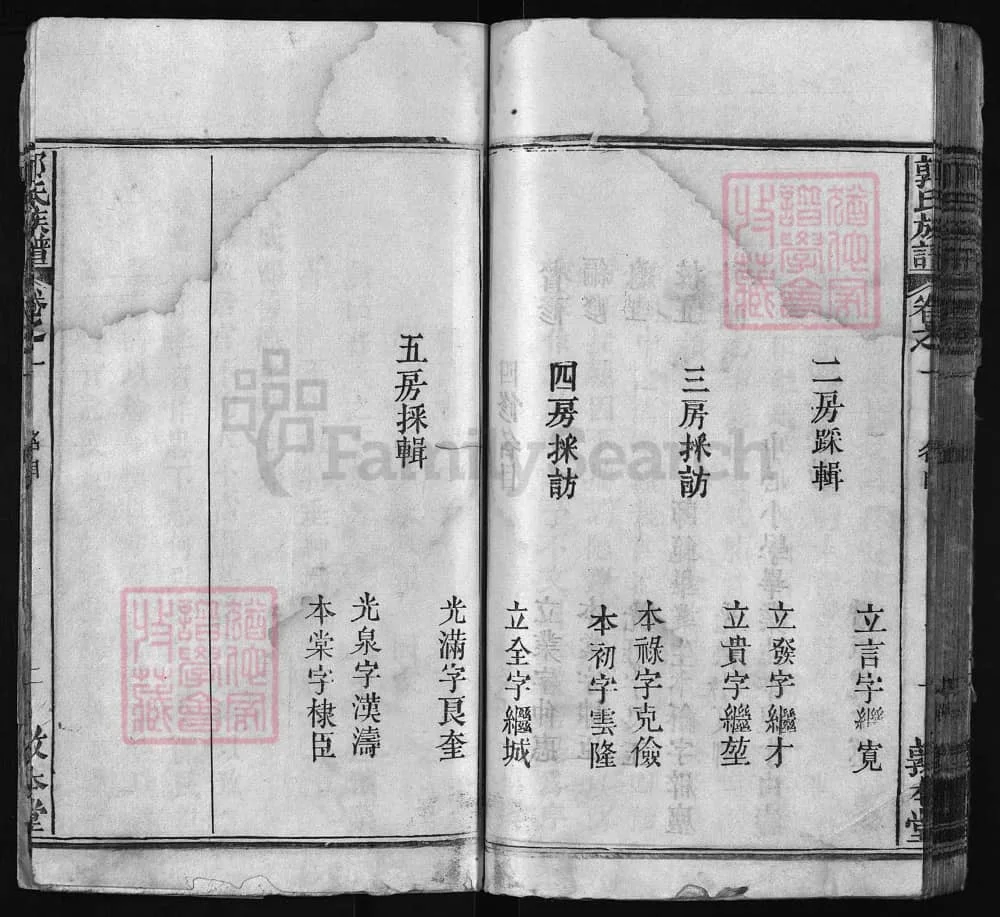 郭氏族譜
卷之一
名目
一
敦本堂
立言字繼寬
二房踩輯
立發字繼才
立貴字繼堃
三房採訪
本祿字克儉
本初字雲隆
四房採訪
立全字繼城
光滿字良奎
五房採輯
光泉字漢濤
本棠字棣臣
郭氏族譜
卷之一
名目
二
敦本堂
FamilySearch